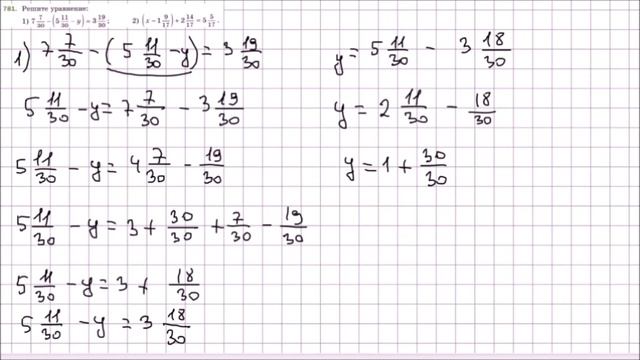 781. Решите уравнение:
1) 7 7/30 − (5 11/30 − y) = 3 19/30; 2) (x − 1 9/17) + 2 14/17 = 5 5/17.
1) 7 7/30 − (5 11/30 − y) = 3 19/30
5 11/30 − y = 7 7/30 − 3 19/30
5 11/30 − y = 4 7/30 − 19/30
5 11/30 − y = 3 + 30/30 + 7/30 − 19/30
5 11/30 − y = 3 + 18/30
5 11/30 − y = 3 18/30
y = 5 11/30 − 3 18/30
y = 2 11/30 − 18/30
y = 1 + 30/30